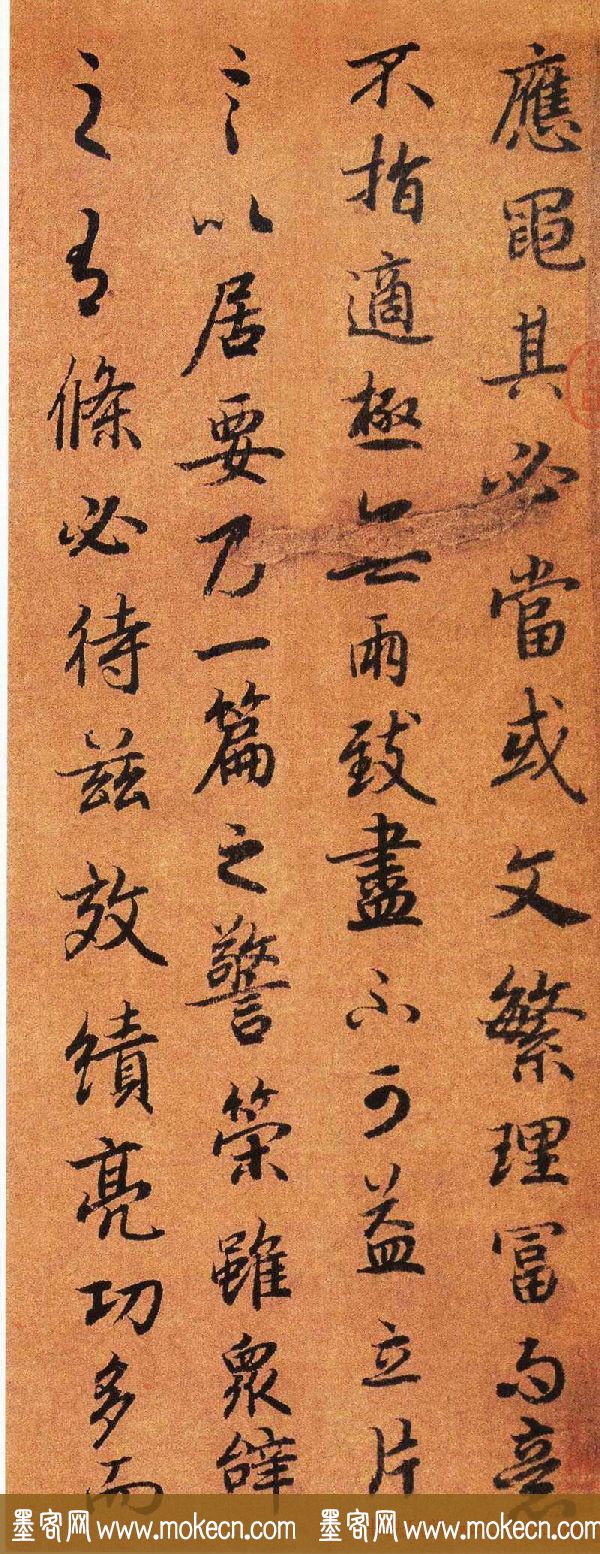 應黽其必當或文繁理富而意
不指適極無兩致盡不可益立片
言以居要乃一篇之警策雖衆辭
之有條必待茲效績亮功多而
墨客网 www.mokecn.com 墨客网 www.mokecn.com